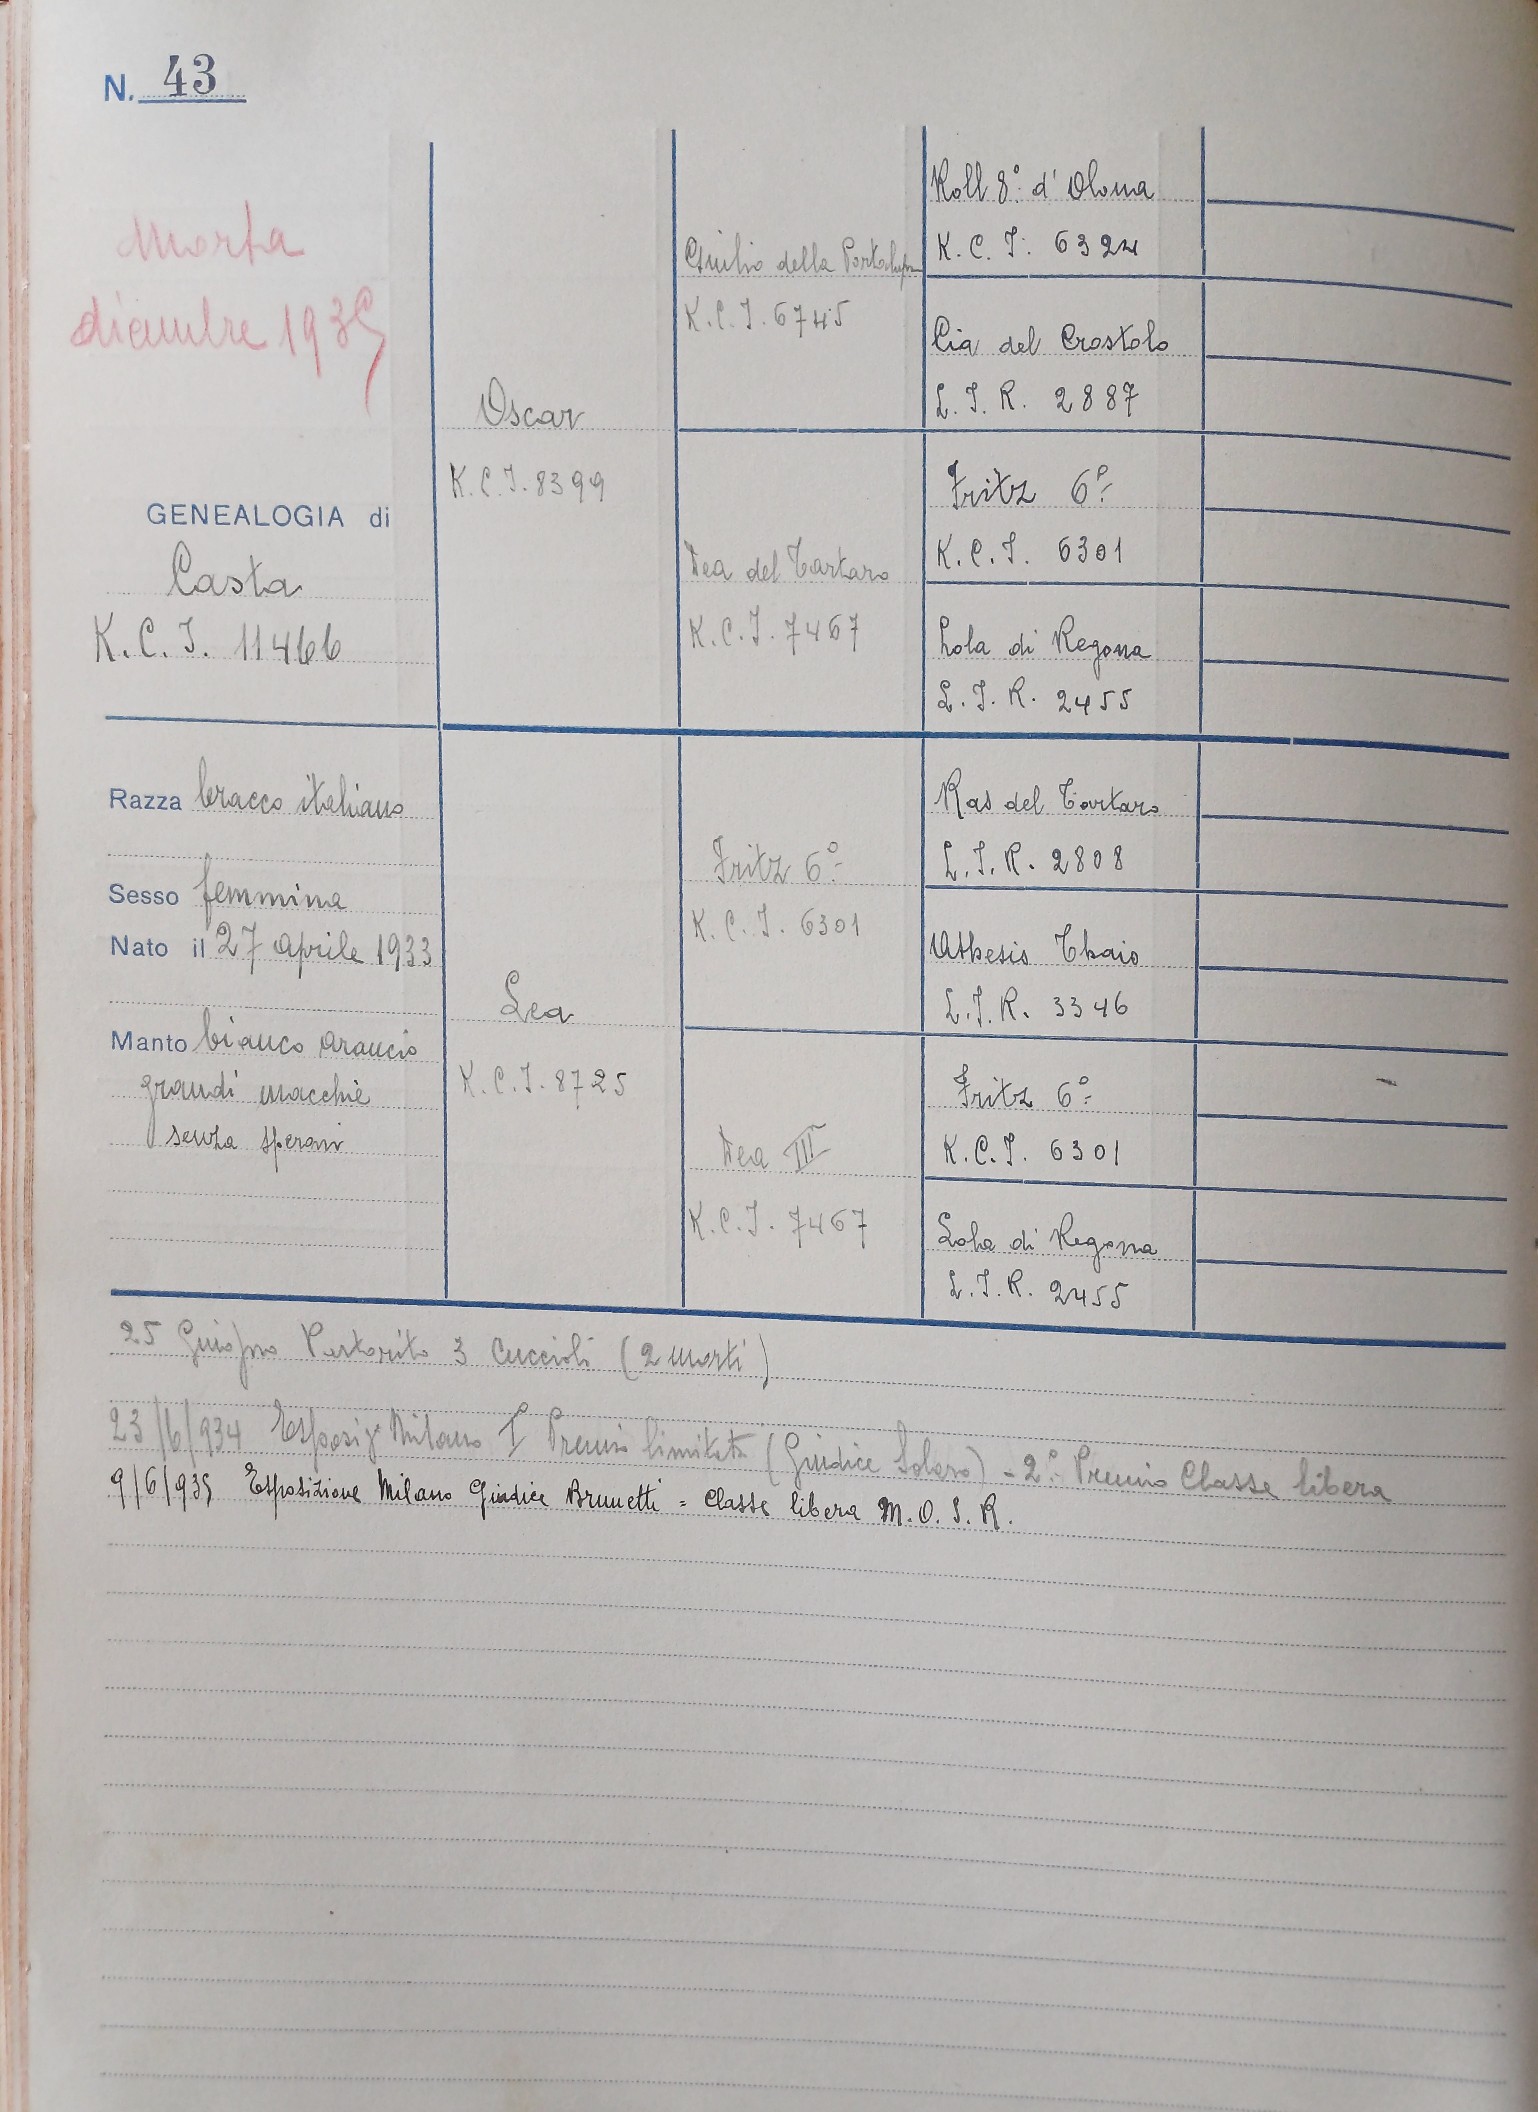 N. 43
Morta
dicembre 1935
GENEALOGIA di
Casta
K.C.I. 11466
Razza bracco italiano
Sesso femmina
Nato il 27 aprile 1933
Manto bianco arancio
grandi macchie
senza speroni
Oscar
K.C.I. 8399
Lea
K.C.I. 8725
Giulio della Portalupa
K.C.I. 6745
Tea del Tartaro
K.C.I. 7467
Fritz 6º
K.C.I. 6301
Tea III
K.C.I. 7467
Roll 8º d'Olona
K.C.I. 6324
Cia del Crostolo
L.I.R. 2887
Fritz 6º
K.C.I. 6301
Lola di Regona
L.I.R. 2455
Ras del Tartaro
L.I.R. 2808
Athesis
L.I.R. 3346
Fritz 6º
K.C.I. 6301
Lola di Regona
L.I.R. 2455
25 Giugno Partorito 3 Cuccioli (2 morti)
23/6/934 Esposiz Milano I Premio limitata (Giudice Solaro) - 2º Premio Classe libera
9/6/935 Esposizione Milano Giudice Brunetti = Classe libera M.O.I.R.